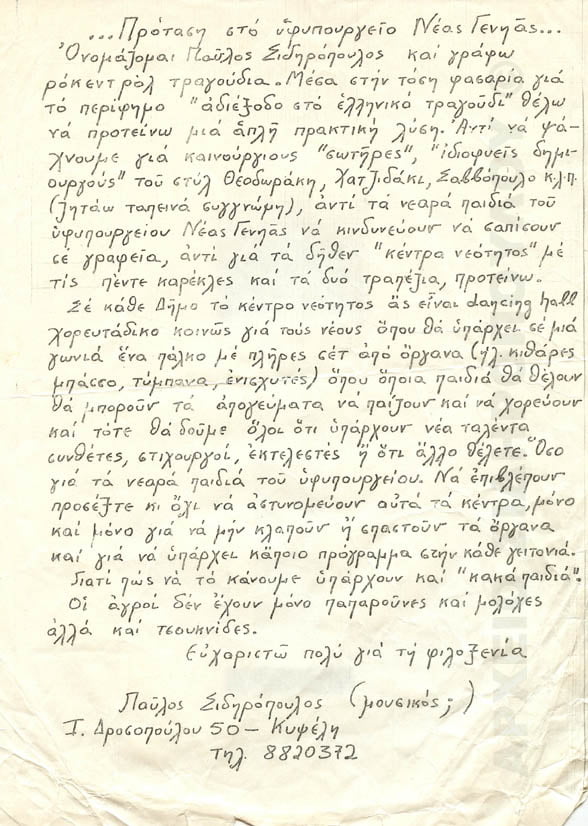 ...Πρόταση στό ὑφυπουργεῖο Νέας Γενηᾶς...
Ὀνομάζομαι Παῦλος Σιδηρόπουλος καί γράφω
ρόκεντρολ τραγούδια. Μέσα στήν τόση φασαρία γιά
τό περίφημο "ἀδιέξοδο στό ἑλληνικό τραγοῦδι" θέλω
νά προτείνω μιά ἁπλῆ πρακτική λύση. Ἀντί νά ψά-
χνουμε γιά καινούργιους "σωτῆρες", "ἰδιοφυεῖς δημι-
ουργούς" τοῦ στύλ Θεοδωράκη, Χατζιδάκι, Σαββόπουλο κ.λ.π.
(ζητάω ταπεινά συγγνώμη), ἀντί τά νεαρά παιδιά τοῦ
ὑφυπουργείου Νέας Γενηᾶς νά κινδυνεύουν νά σαπίσουν
σέ γραφεῖα, ἀντί γιά τά δῆθεν "κέντρα νεότητος" μέ
τίς πέντε καρέκλες καί τά δυό τραπέζια, προτείνω.
Σέ κάθε Δῆμο τό κέντρο νεότητος ἄς εἶναι dancing hall
χορευτάδικο κοινῶς γιά τούς νέους ὅπου θά ὑπάρχει σέ μιά
γωνιά ἕνα πάλκο μέ πλῆρες σέτ ἀπό ὄργανα (ἠλ. κιθάρες
μπάσσο, τύμπανα, ἐνισχυτές) ὅπου ὅποια παιδιά θά θέλουν
θά μποροῦν τά ἀπογεύματα νά παίζουν καί νά χορεύουν
καί τότε θά δοῦμε ὅλοι ὅτι ὑπάρχουν νέα ταλέντα
συνθέτες, στιχουργοί, ἐκτελεστές ἤ ὅτι ἄλλο θέλετε. Ὅσο
γιά τά νεαρά παιδιά τοῦ ὑφυπουργείου. Νά ἐπιβλέπουν
προσέξτε κι ὄχι νά ἀστυνομεύουν αὐτά τά κέντρα, μόνο
καί μόνο γιά νά μήν κλαποῦν ἤ σπαστοῦν τά ὄργανα
καί γιά νά ὑπάρχει κάποιο πρόγραμμα στήν κάθε γειτονιά.
Γιατί πώς νά τό κάνουμε ὑπάρχουν καί "κακά παιδιά".
Οἱ ἀγροί δέν ἔχουν μόνο παπαροῦνες καί μολόχες
ἀλλά καί τσουκνίδες.
Εὐχαριστῶ πολύ γιά τή φιλοξενία
Παῦλος Σιδηρόπουλος (μουσικός;)
Ι. Δροσοπούλου 50 - Κυψέλη
τηλ. 8820372